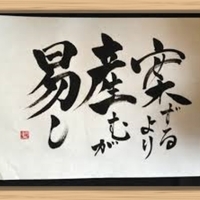 案ずるより
産むが
易し